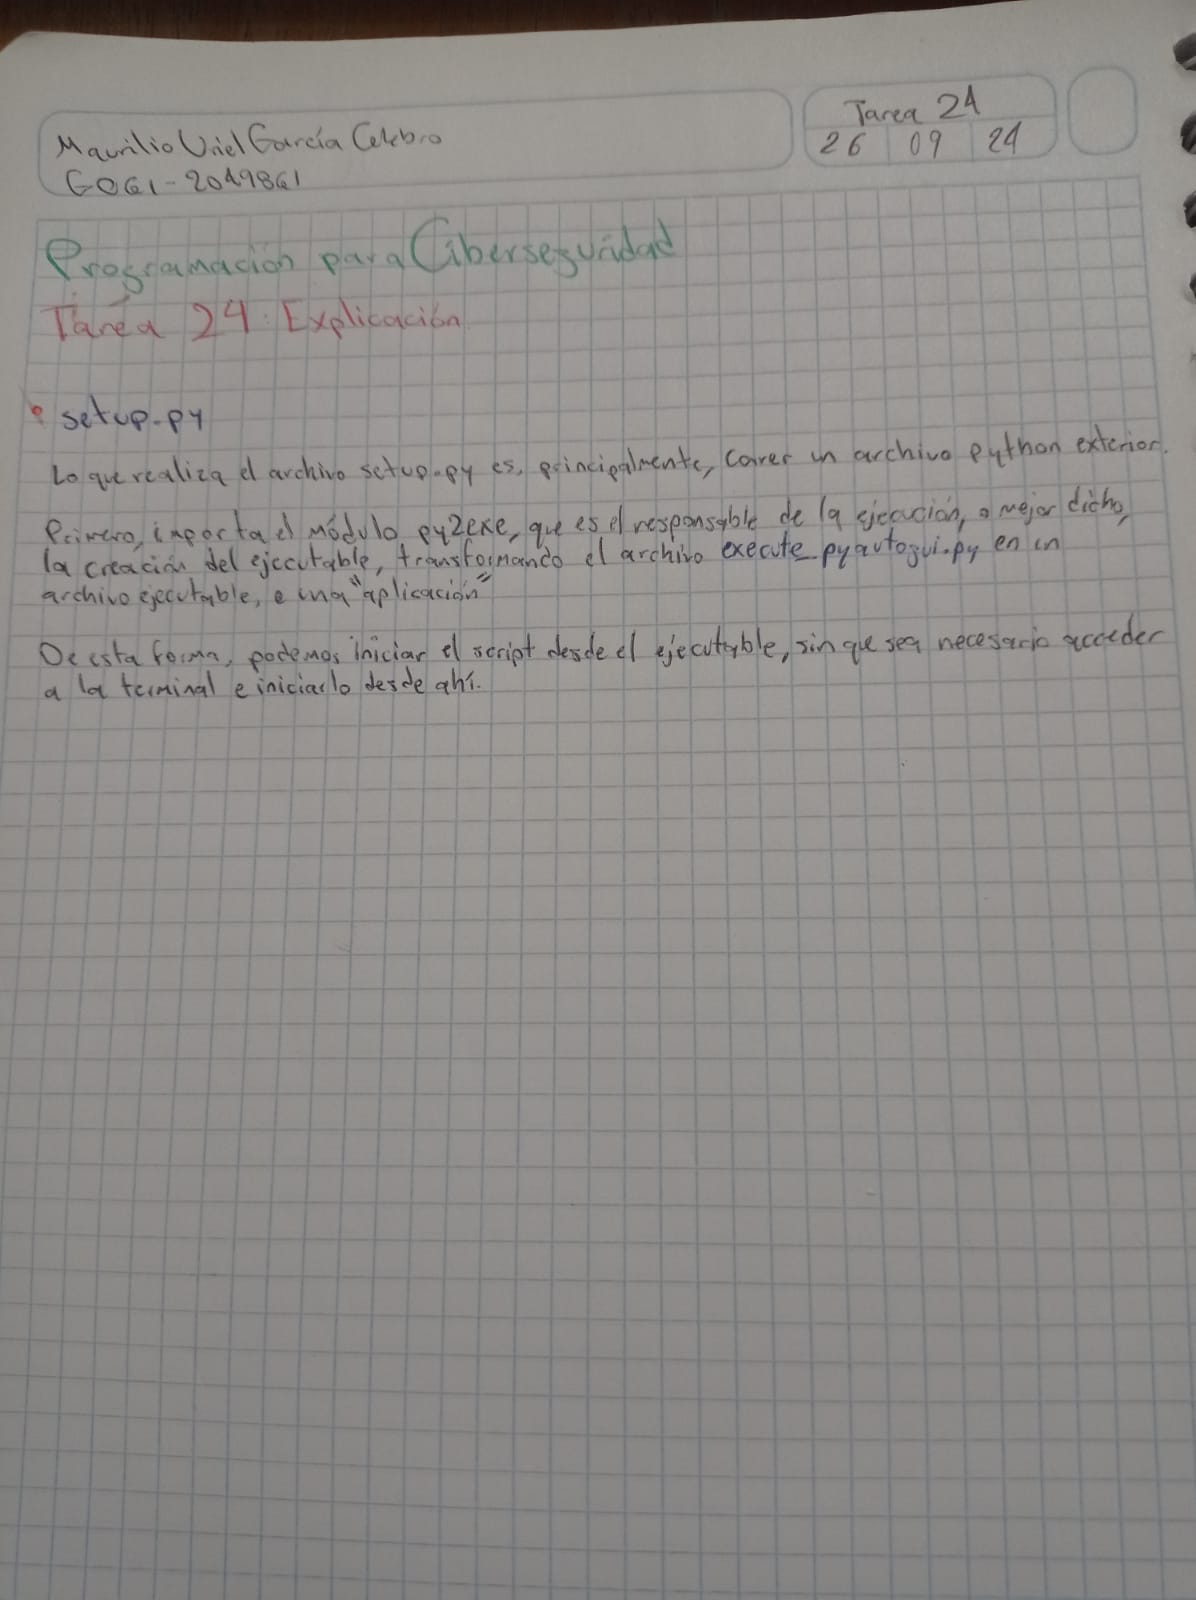 Tarea 24
26 09 24
Maurilio Uriel García Celebro
G061-2049861
Programación para Ciberseguridad
Tarea 24: Explicación
setup.py
Lo que realiza el archivo setup.py es, principalmente, correr un archivo python exterior.
Primero, importa el módulo py2exe, que es el responsable de la ejecución, o mejor dicho,
la creación del ejecutable, transformando el archivo execute_pyautogui.py en un
archivo ejecutable, o una "aplicación"
De esta forma, podemos iniciar el script desde el ejecutable, sin que sea necesario acceder
a la terminal e iniciarlo desde ahí.